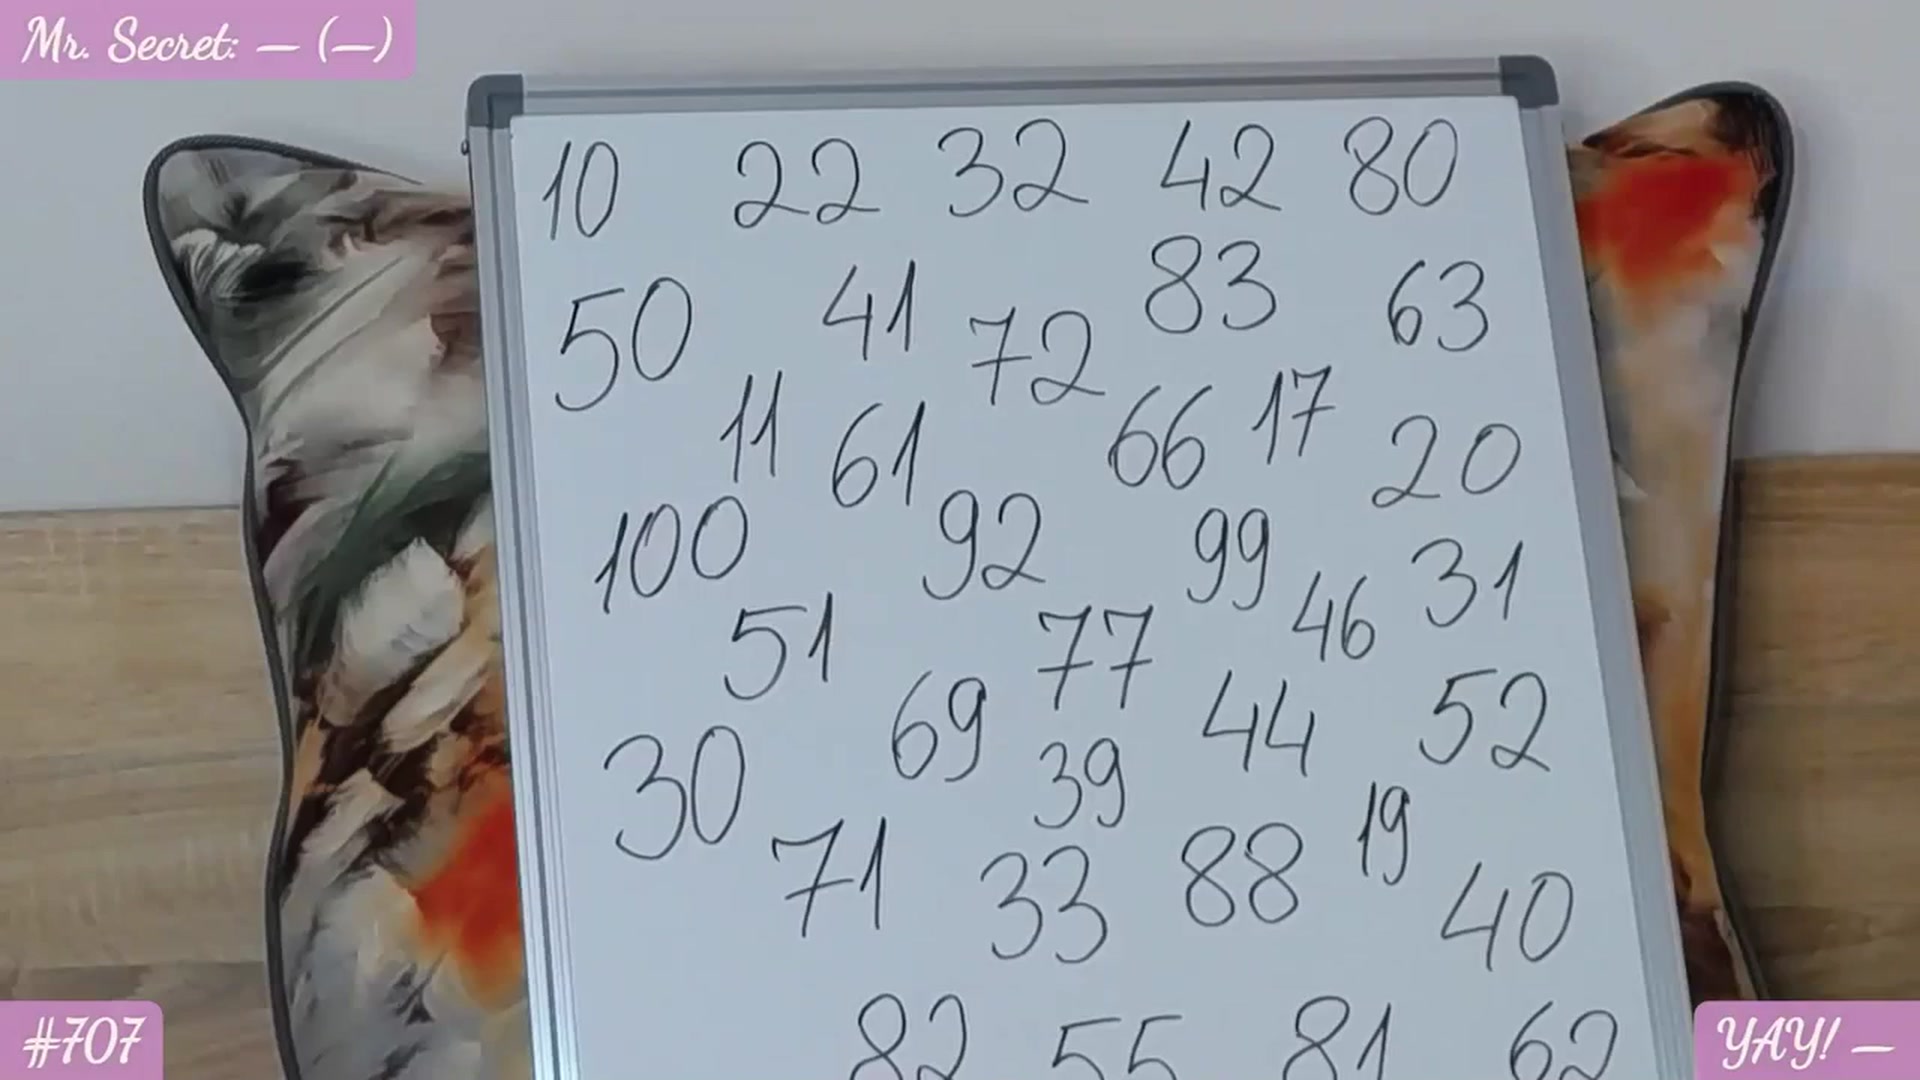 Mr. Secret: — (—)
10 22 32 42 80
50 41 72 83 63
11 61 66 17 20
100 92 99 46 31
51 77
69 44 52
30 39
71 33 88 19 40
82 55 81 62
#707
YAY! —